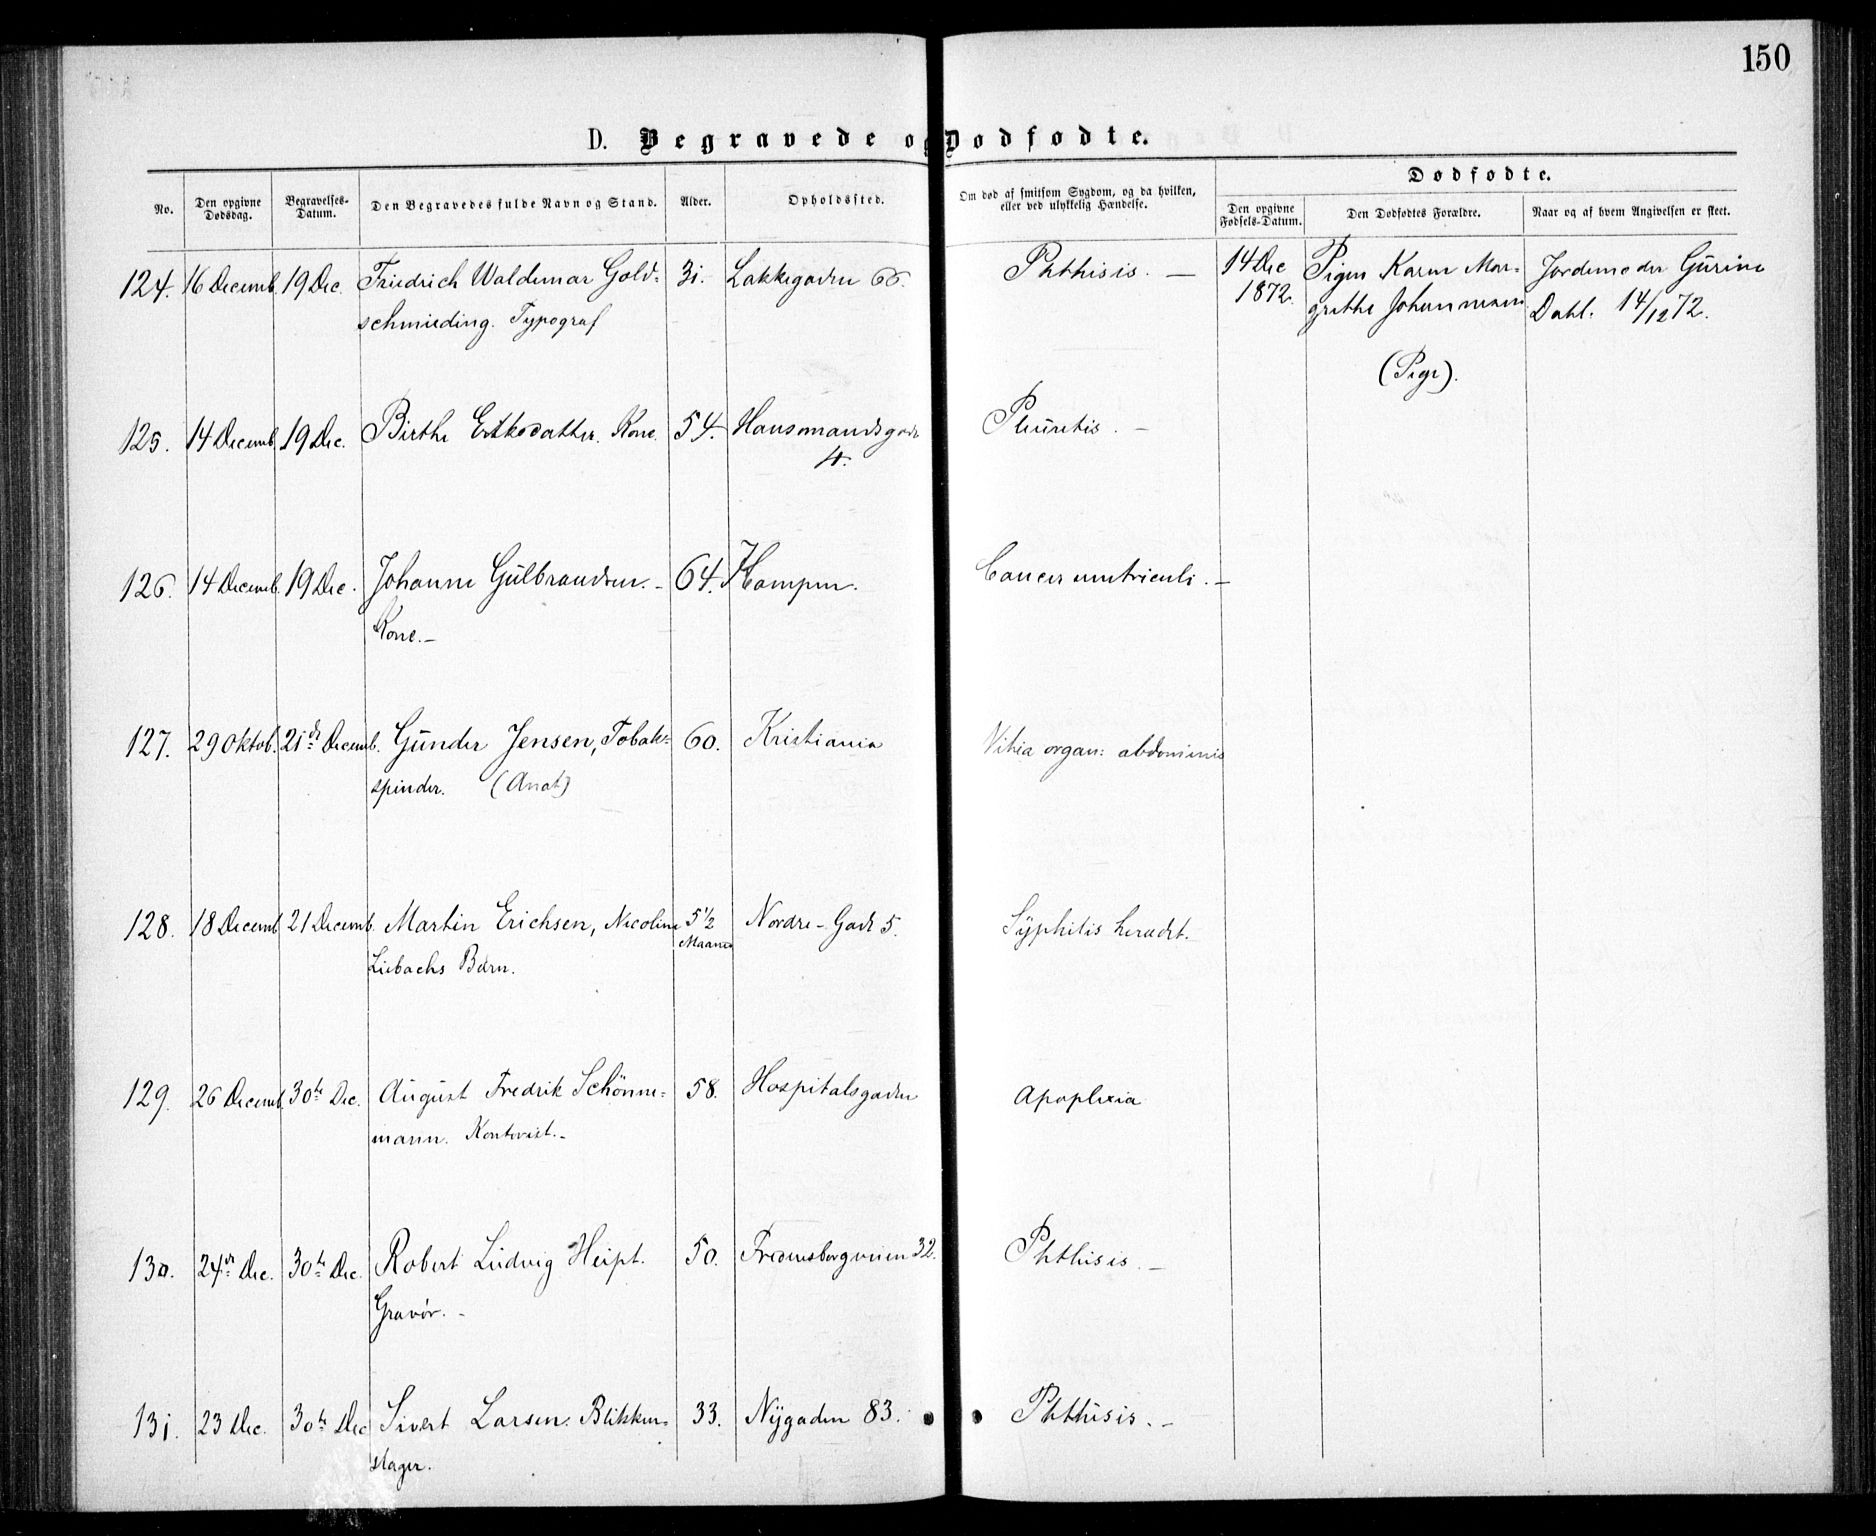 150
D. Begravede og Dødfødte.
No. Den opgivne Dødsdag. Begravelses-Datum. Den Begravedes fulde Navn og Stand. Alder. Opholdssted. Om død af smitsom Sygdom, og da hvilken, eller ved ulykkelig Hændelse. Dødfødte.
Den opgivne Fødsels-Datum. Den Dødfødtes Forældre. Naar og af hvem Angivelsen er skeet.
124. 16 Decemb. 19 Dec. Friedrich Waldemar Gold- 31. Lakkegaden 66. Phthisis. — 14 Dec Pigen Karen Mar- Jordemoder Gurine
schmieding. Typograf 1872. grethe Johannesen Dahl. 14/12 72.
(Pige).
125. 14 Decemb. 19 Dec. Birthe Kone. 54. Hausmandsgade Pleuritis. —
4.
126. 14 Decemb. 19 Dec. Johanne Gulbrandsen. - 64. Kampen. Cancer ventriculi. —
Kone. —
127. 29 Oktob. 21de Decemb. Gunder Jensen, Tobak- 60. Kristiania Vitia organ: abdominis
spinder. (Anat)
128. 18 Decemb 21 Decemb. Martin Erichsen, Nicoline 5 1/2 Nordre - Gade 5. Syphilis heredt.
Liebachs Barn. Maaned
129. 26 Decemb. 30te Dec. August Fredrik Schönne- 58. Hospitalsgaden Apoplexia
mann. Kontorist. -
130. 24de Dec. 30te Dec. Robert Ludvig Heipt. 50. Fredensborgveien 32. Phthisis. —
Gravør. -
131. 23 Dec. 30te Dec Sivert Larsen. Blikken- 33. Nygaden 83. Phthisis. —
slager.